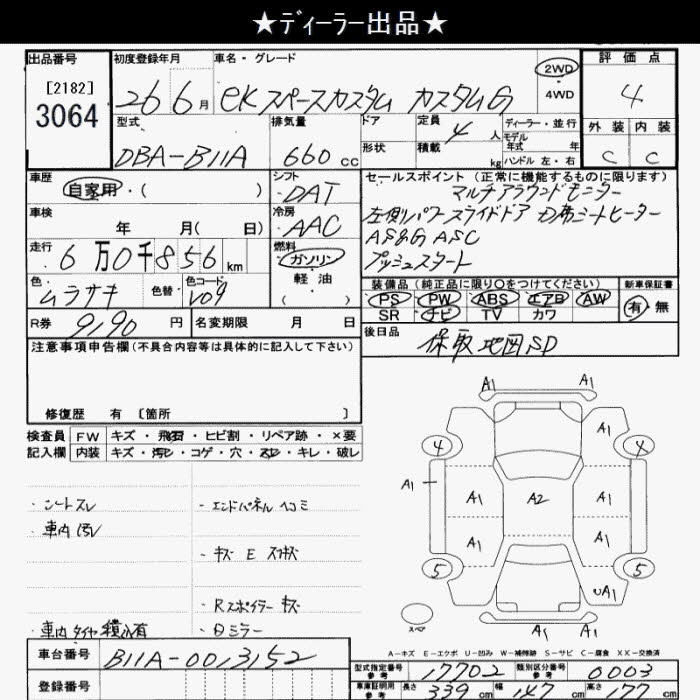 ★ディーラー出品★
出品番号 初度登録年月 車名・グレード 評価点
[2182]
3064 26 6月 eKスペースカスタム カスタムG 2WD ・ 4WD 4
型式 排気量 ドア 定員 4人 ディーラー・並行 外装 内装
DBA-B11A 660cc 形状 積載 kg モデル年式 年 ハンドル 左・右 C C
車歴 自家用・( ) シフト DAT
セールスポイント(正常に機能するものに限ります)
マルチアラウンドモニター
左側パワースライドドア 助席シートヒーター
AS&G ASC
プッシュスタート
車検 年 月( 日) 冷房 AAC
走行 6万0千856km 燃料 ガソリン・軽油( )
色 ムラサキ 色替 色コード V09
装備品(純正品に限り○をつけてください) 新車保証書
PS・PW・ABS・エアB・AW 有・無
SR・ナビ・TV・カワ
R券 9190円 名変期限 月 日
後日品 保取地図SD
注意事項申告欄(不具合内容等は具体的に記入して下さい)
修復歴 有〔箇所 〕
検査員記入欄 FW キズ・飛石・ヒビ割・リペア跡・×要
内装 キズ・汚レ・コゲ・穴・スレ・キレ・破レ
・シートスレ
・車内汚レ
・車内タイヤ積込有
・エンドパネルヘコミ
・キズ E スリキズ
・Rスポイラーキズ
・Dミラー
A1 A1
4 A1 4
A1 A1 A2 A1
A1 A1
5 UA1 5
スペア A1 A1
A-キズ E-エクボ U-凹み W-補修跡 S-サビ C-腐食 XX-交換済
車台番号 B11A-0013152
型式指定番号 参考 17702 類別区分番号 参考 0003
登録番号
車庫証明用 参考 長さ 339cm 幅 147cm 高さ 177cm